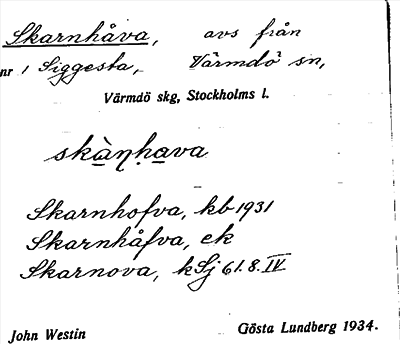 Skarnhåva, avs från
nr 1 Siggesta, Värmdö sn,
Värmdö skg, Stockholms l.
skàṇḥava
Skarnhofva, kb 1931
Skarnhåfva, ek
Skarnova, kSj 61.8.IV
John Westin Gösta Lundberg 1934.